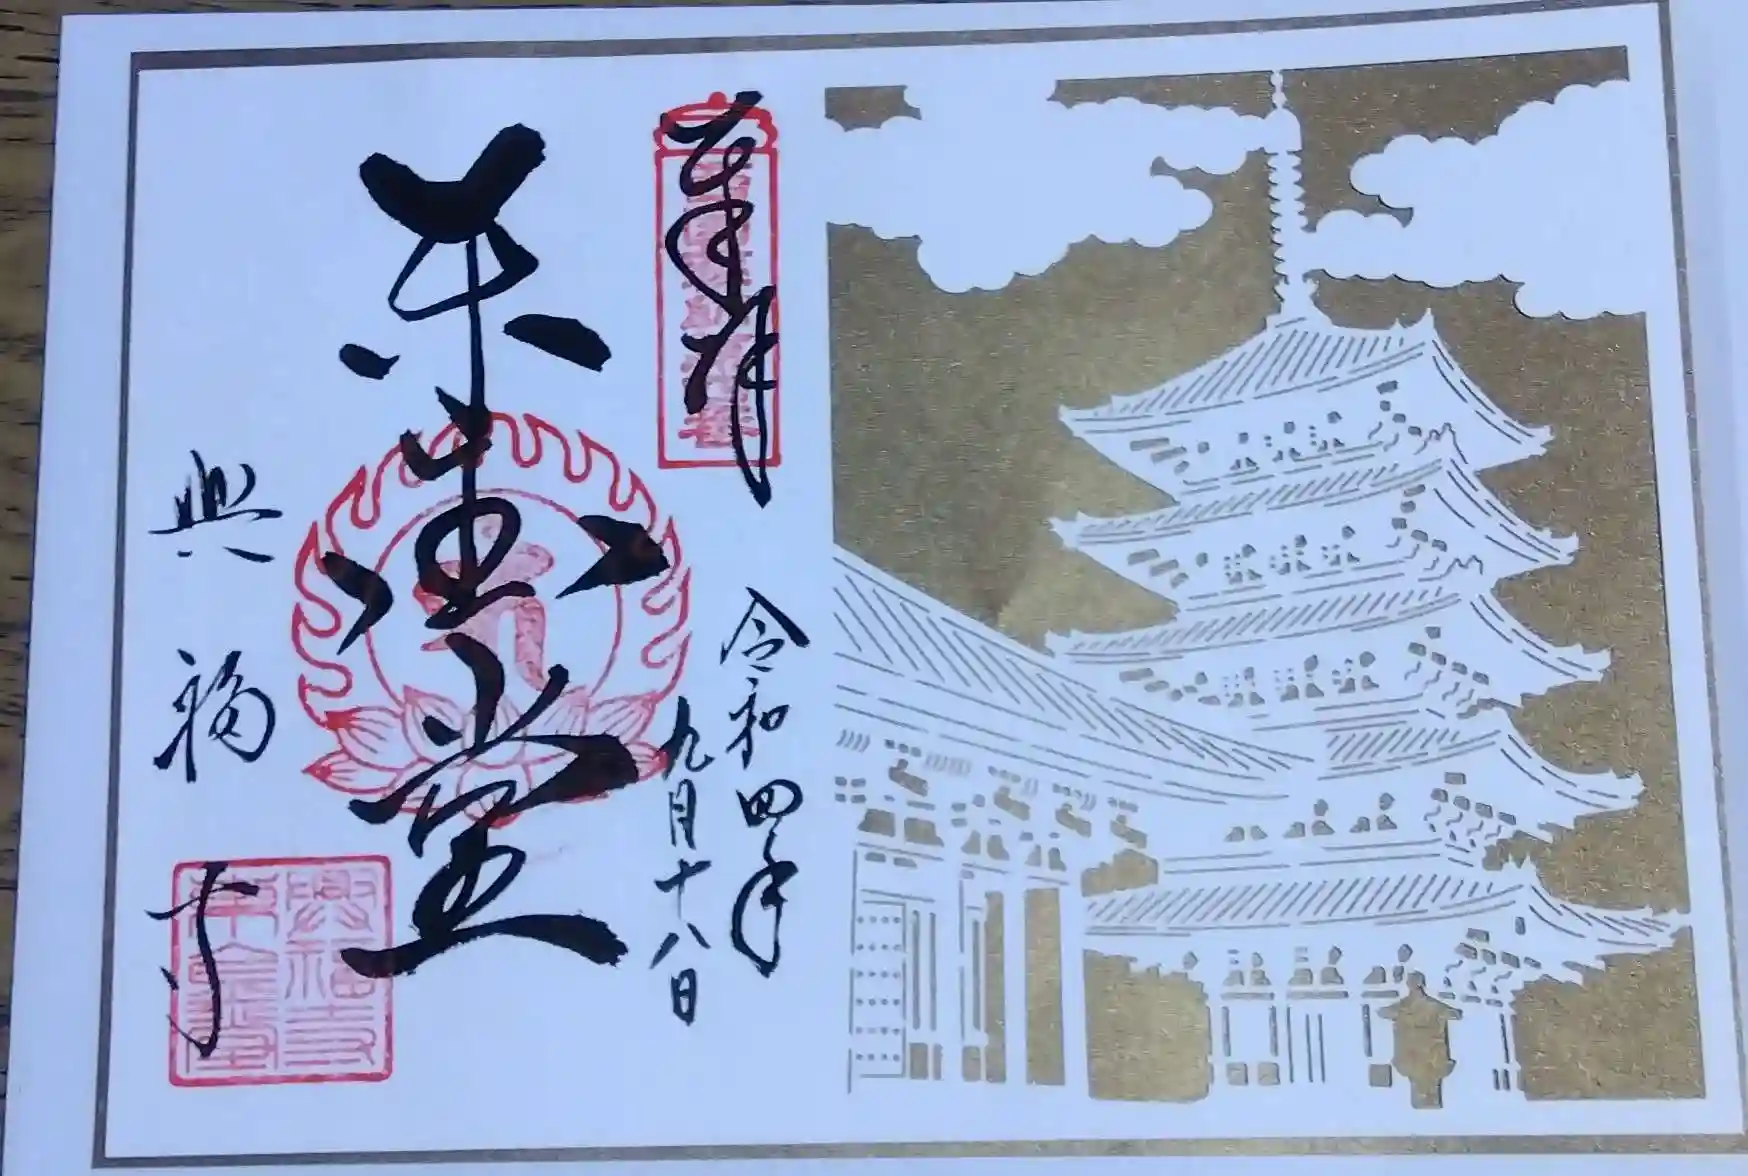 奉拝
令和四年
九月十八日
東金堂
興福寺
興福寺
東金堂